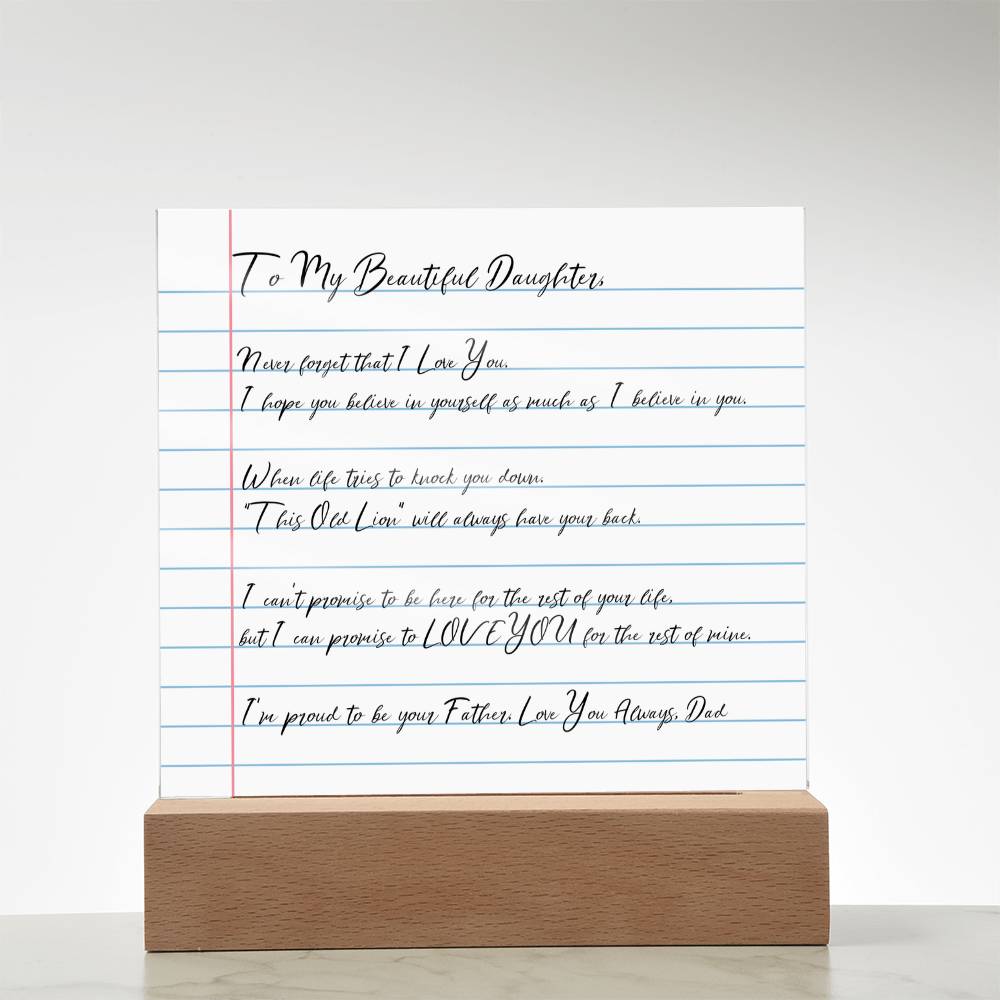 To My Beautiful Daughter,
Never forget that I Love You.
I hope you believe in yourself as much as I believe in you.
When life tries to knock you down.
"This Old Lion" will always have your back.
I can't promise to be here for the rest of your life,
but I can promise to LOVE YOU for the rest of mine.
I'm proud to be your Father. Love You Always, Dad